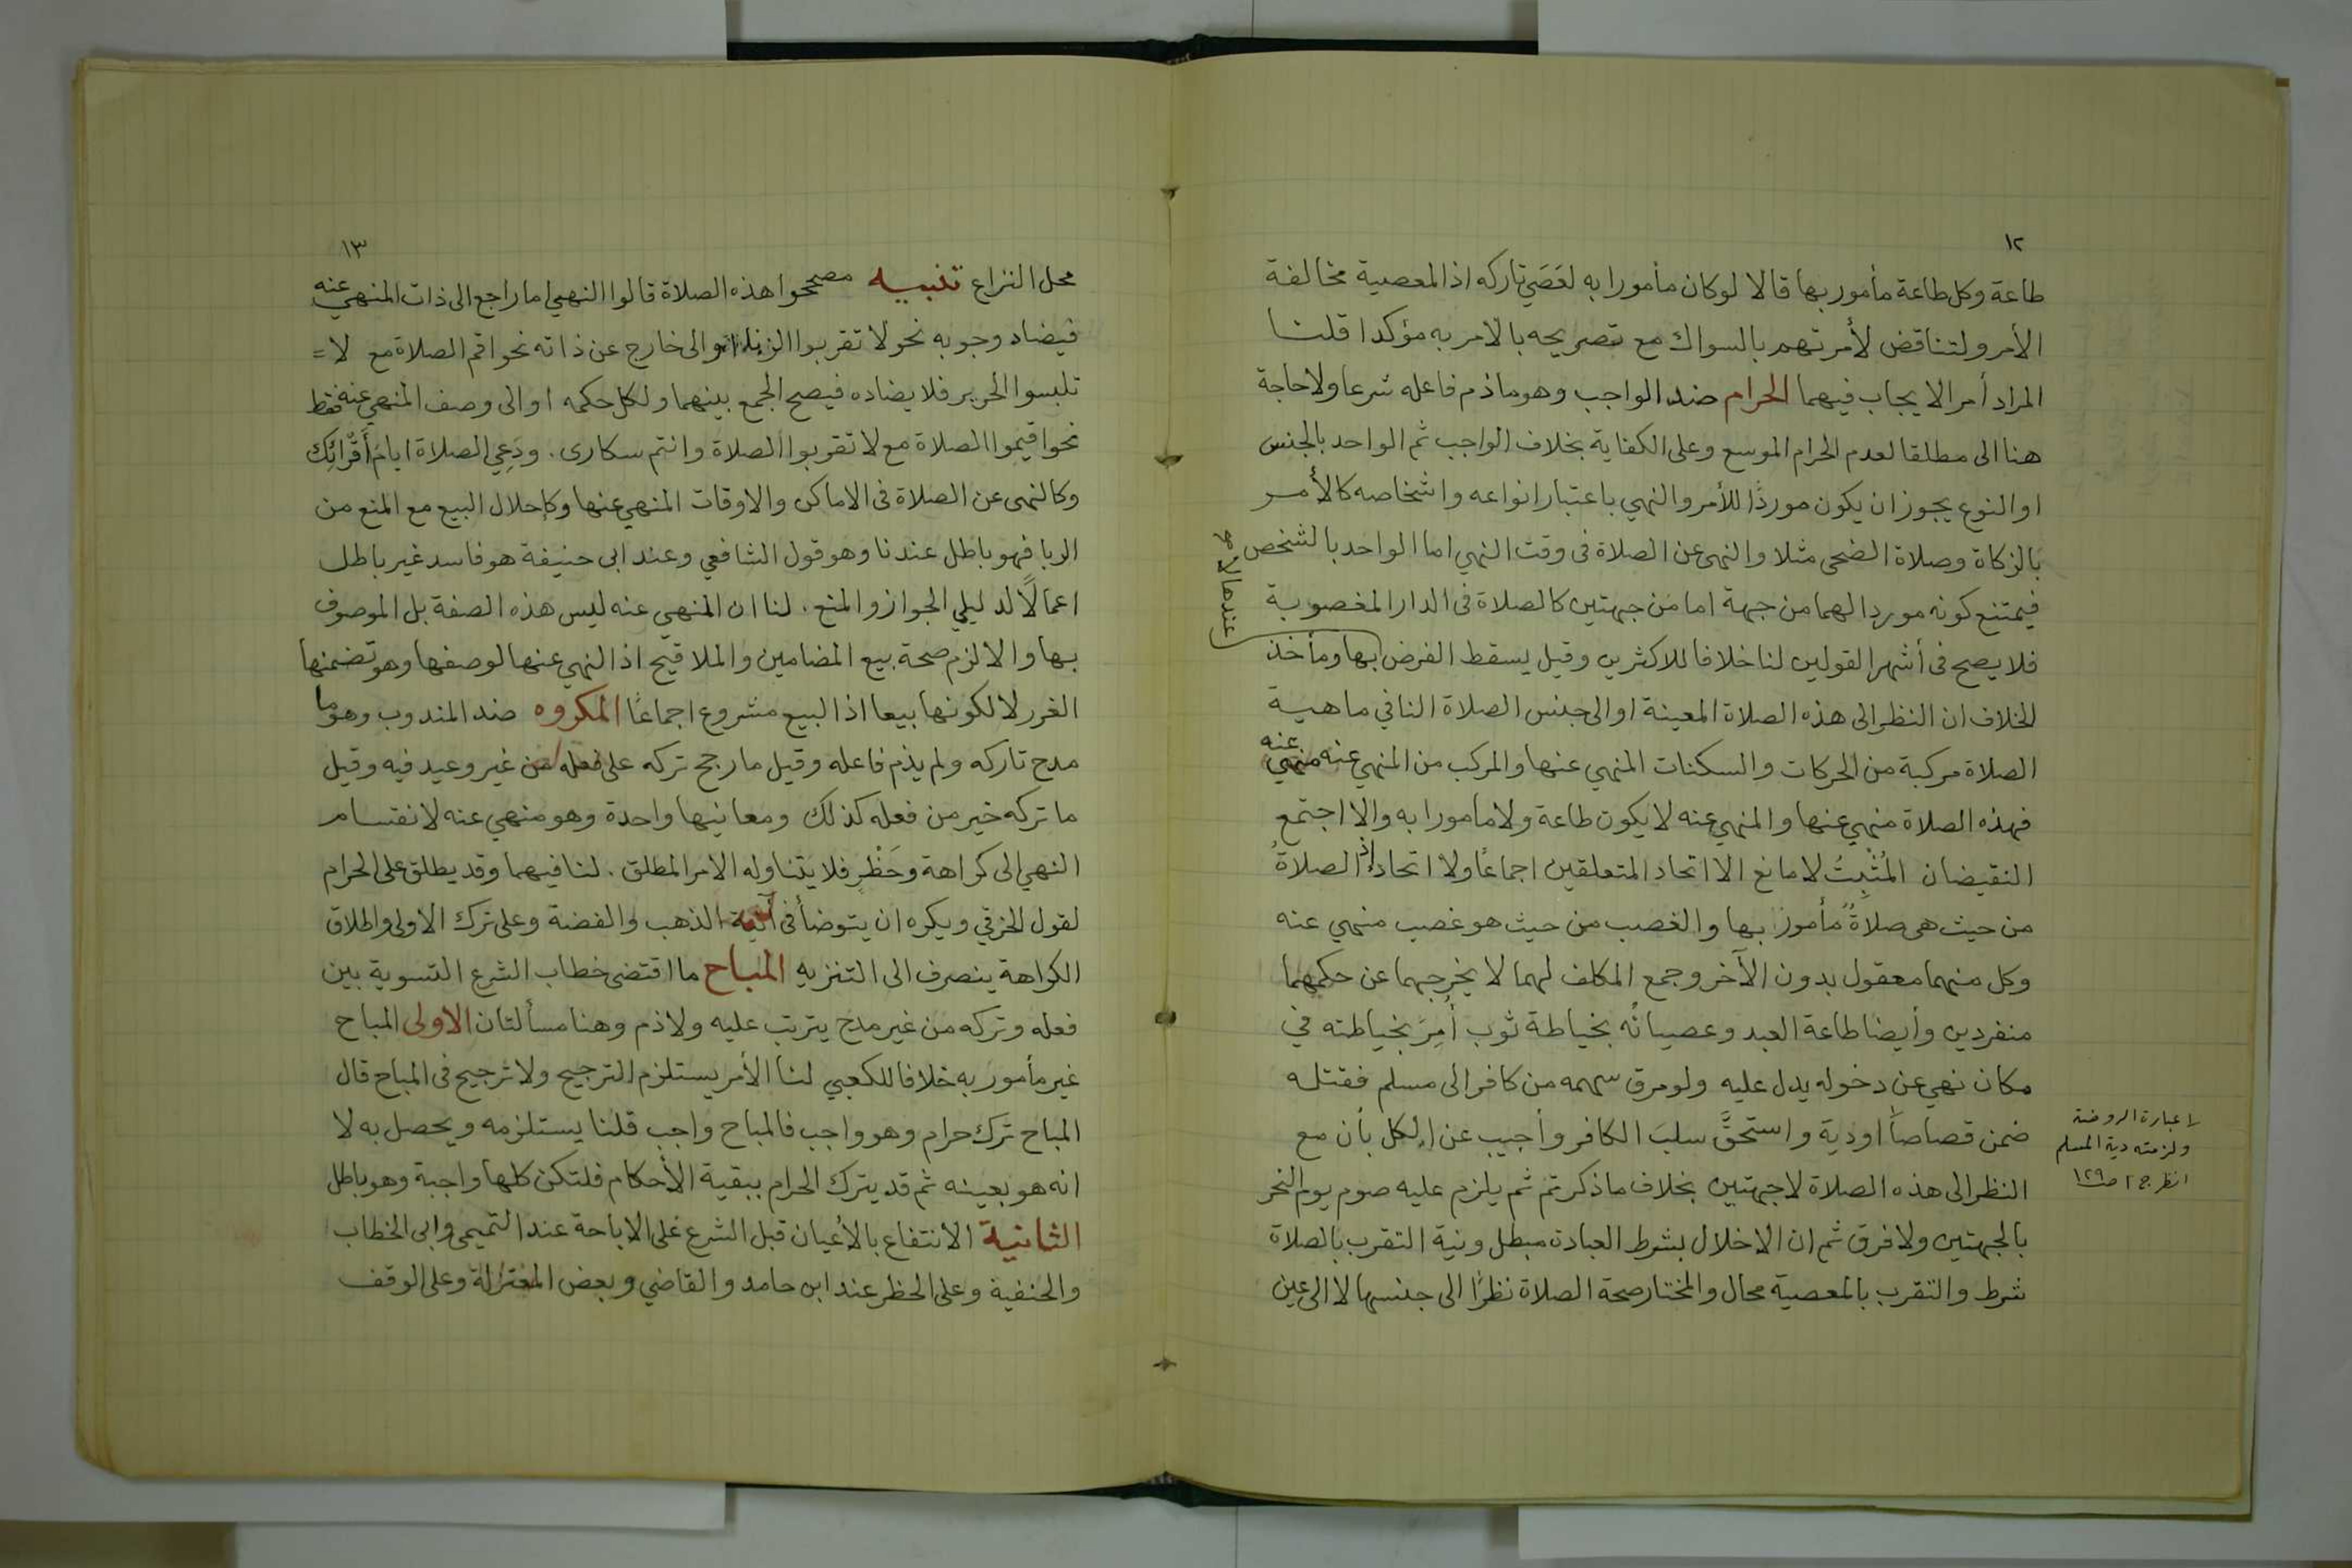 ١٢
طاعة وكل طاعة مأمور بها قالا لو كان مأمورا به لعَصَي تاركه اذ المعصية مخالفة
الأمر ولتناقض لأمرتهم بالسواك مع تصريحه بالامر به مؤكدا قلنا
المراد أمر الايجاب فيهما الحرام ضد الواجب وهو ما ذم فاعله شرعا ولا حاجة
هنا الى مطلقا لعدم الحرام الموسع وعلى الكفاية بخلاف الواجب ثم الواحد بالجنس
او النوع يجوز ان يكون موردًا للأمر والنهي باعتبار انواعه واشخاصه كالأمر
بالزكاة وصلاة الضحى مثلا والنهى عن الصلاة فى وقت النهي اما الواحد بالشخص
فيمتنع كونه موردا لهما من جهة اما من جهتين كالصلاة فى الدار المغصوبة
فلا يصح فى أشهر القولين لنا خلافا للاكثرين وقيل يسقط الفرض بها ومأخذ
عندها لا
الخلاف ان النظر الى هذه الصلاة المعينة او الى جنس الصلاة النافي ماهية
الصلاة مركبة من الحركات والسكنات المنهي عنها والمركب من المنهي عنه منهي عنه
فهذه الصلاة منهي عنها والمنهي عنه لا يكون طاعة ولا مامورا به والا اجتمع
النقيضان المُثْبِتُ لا مانع الا اتحاد المتعلقين اجماعًا ولا اتحاد إذ الصلاةُ
من حيث هى صلاةٌ مأمور بها والغصب من حيث هو غصب منهي عنه
وكل منهما معقول بدون الآخر وجمع المكلف لهما لا يخرجهما عن حكمهما
منفردين وأيضا طاعة العبد وعصيانُه بخياطة ثوب أُمِرَ بخياطته في
مكان نهي عن دخوله يدل عليه ولو مرق سهمه من كافر الى مسلم فقتله
ضمن قصاصًا او دية واستحقَّ سلبَ الكافر وأجيب عن الكل بأن مع
النظر الى هذه الصلاة لا جهتين بخلاف ما ذكرتم ثم يلزم عليه صوم يوم النحر
بالجهتين ولا فرق ثم ان الاخلال بشرط العبادة مبطل ونية التقرب بالصلاة
شرط والتقرب بالمعصية محال والمختار صحة الصلاة نظرًا الى جنسها لا الى عين
عبارة الروضة
ولزمته دية المسلم
انظر ج ١ ص ١٢٩
١٣
محل النزاع تنبيه مصححوا هذه الصلاة قالوا النهي اما راجع الى ذات المنهي عنه
فيضاد وجوبه نحو لا تقربوا الزنا او الى خارج عن ذاته نحو اقم الصلاة مع لا =
تلبسوا الحرير فلا يضاده فيصح الجمع بينهما ولكل حكمه او الى وصف المنهي عنه فقط
نحو اقيموا الصلاة مع لا تقربوا الصلاة وانتم سكارى. ودَعِي الصلاة ايام أَقْرَائِك
وكالنهى عن الصلاة فى الاماكن والاوقات المنهي عنها وكإحلال البيع مع المنع من
الربا فهو باطل عندنا وهو قول الشافعي وعند ابى حنيفة هو فاسد غير باطل
اعمالًا لدليلي الجواز والمنع. لنا ان المنهي عنه ليس هذه الصفة بل الموصوف
بها والا لزم صحة بيع المضامين والملاقيح اذ النهي عنها لوصفها وهو تضمنها
الغرر لا لكونها بيعا اذ البيع مشروع اجماعًا المكروه ضد المندوب وهو ما
مدح تاركه ولم يذم فاعله وقيل ما رجح تركه على فعله من غير وعيد فيه وقيل
ما تركه خير من فعله كذلك ومعانيها واحدة وهو منهي عنه لانقسام
النهي الى كراهة وحَظْرٍ فلا يتناوله الامر المطلق. لنا فيهما وقد يطلق على الحرام
لقول الخرقي ويكره ان يتوضأ فى آنية الذهب والفضة وعلى ترك الاولى واطلاق
الكراهة ينصرف الى التنزيه المباح ما اقتضى خطاب الشرع التسوية بين
فعله وتركه من غير مدح يترتب عليه ولا ذم وهنا مسألتان الاولى المباح
غير مأمور به خلافا للكعبي لنا الأمر يستلزم الترجيح ولا ترجيح فى المباح قال
المباح ترك حرام وهو واجب فالمباح واجب قلنا يستلزمه ويحصل به لا
انه هو بعينه ثم قد يترك الحرام ببقية الأحكام فلتكن كلها واجبة وهو باطل
الثانية الانتفاع بالأعيان قبل الشرع على الاباحة عند التميمى وابى الخطاب
والحنفية وعلى الحظر عند ابن حامد والقاضي وبعض المعتزلة وعلى الوقف